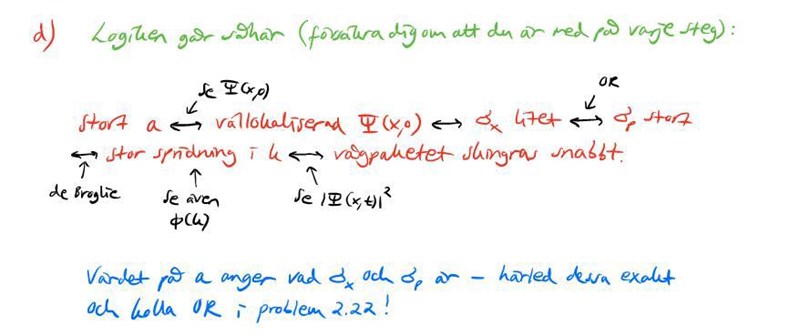 d) Logiken går såhär (försäkra dig om att du är med på varje steg):
se Ψ(x,0)
OR
stort a ↔ vällokaliserad Ψ(x,0) ↔ σₓ litet ↔ σₚ stort
↔ stor spridning i k ↔ vågpaketet skingras snabbt.
de Broglie
se även
φ(k)
se |Ψ(x,t)|²
Värdet på a anger vad σₓ och σₚ är – härled dessa exakt
och kolla OR i problem 2.22!